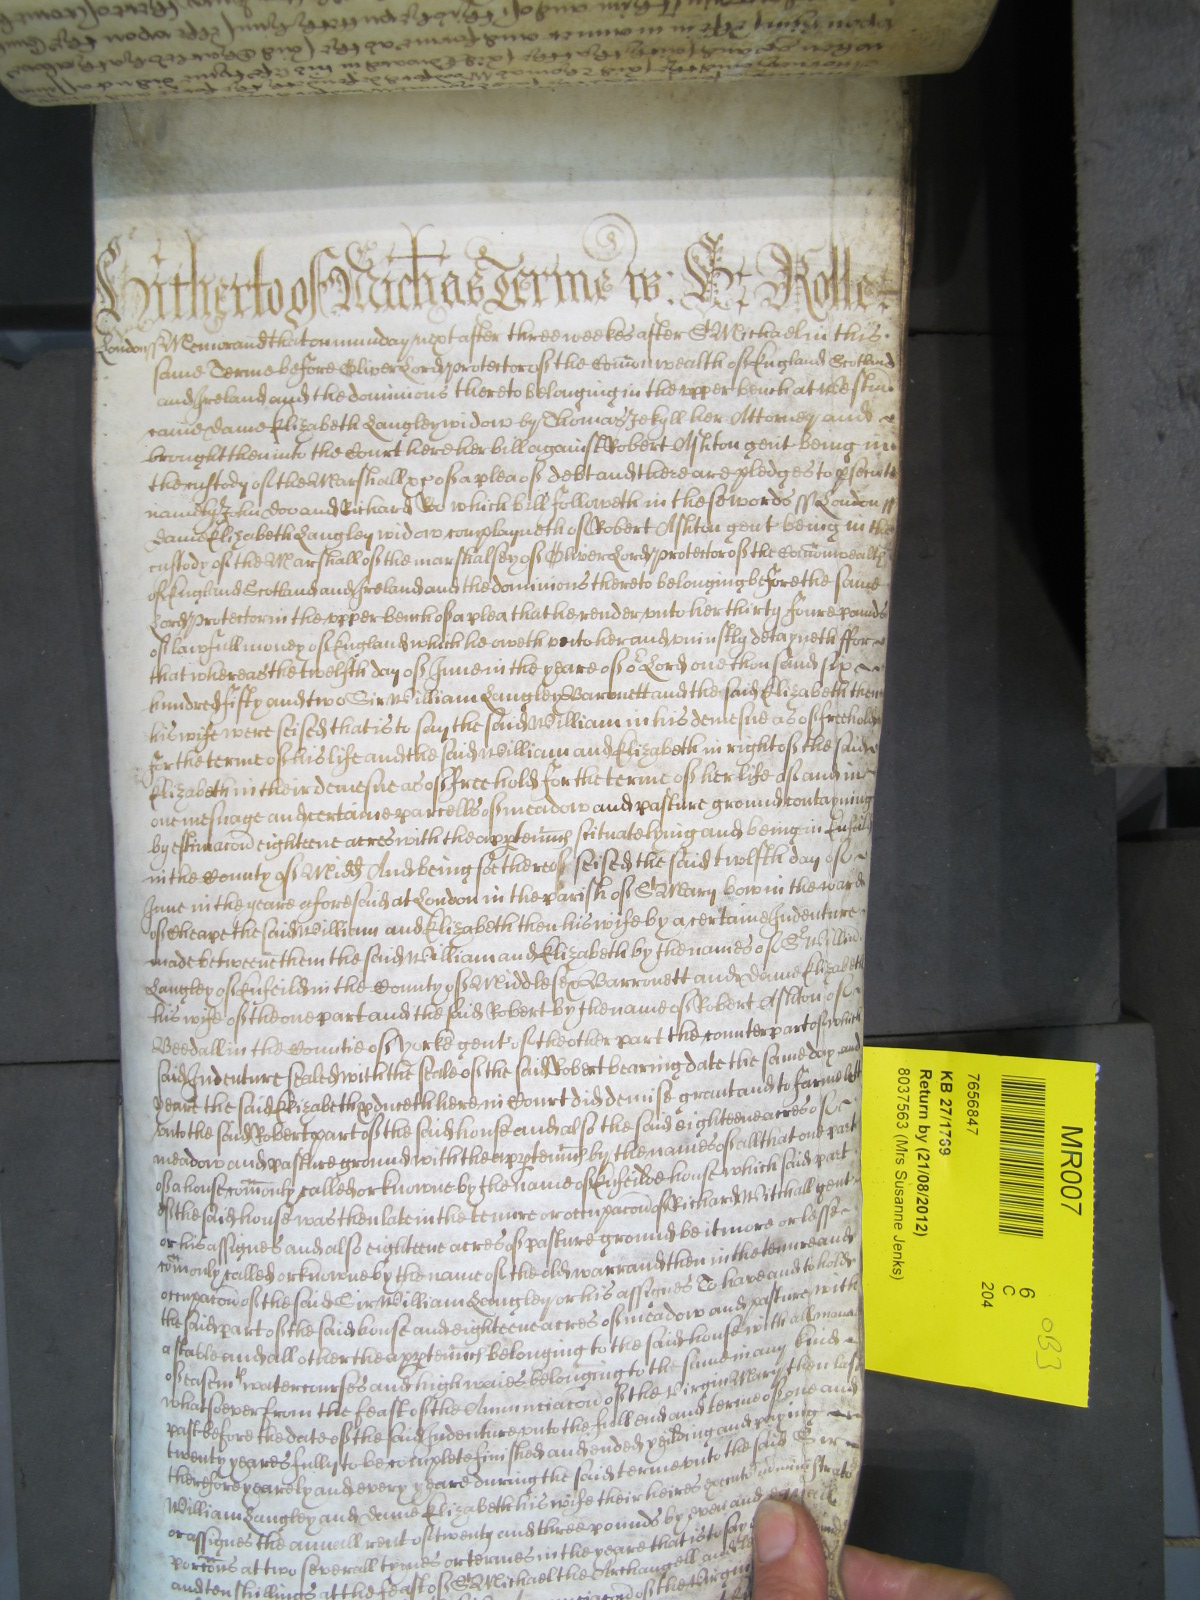 Hitherto of Michās Terme w: Br Rolle
London ss Memorand that on munday next after three weekes after St Michael in this
same Terme before Oliver Lord protector of the Com̄onwealth of England Scotland
and Ireland and the dominions thereto belonging in the upper bench at Westm̄
came Dame Elizabeth Langley widow by Thomas Jekyll her Attorney and
brought then into the Court here her bill against Robert Ashton gent being in
the custody of the Marshall &c of a plea of debt and there are pledges to prosecute
namely John Doo and Richard Roo which bill followeth in these words ss London ss
Dame Elizabeth Langley widow complayneth of Robert Ashton gent being in the
custody of the Marshall of the marshalsey of Oliver Lord protector of the Com̄onwealth
of England Scotland and Ireland and the dominions thereto belonging before the same
Lord protector in the upper bench of a plea that he render unto her thirty foure pounds
of lawfull money of England which he oweth unto her and uniustly detayneth ffor
that whereas the twelfth day of June in the yeare of or Lord one thousand six
hundred fifty and two Sir William Langley Baronett and the said Elizabeth then
his wife were seised that is to say the said William in his demesne as of freehold
for the terme of his life and the said William and Elizabeth in right of the said
Elizabeth in their demesne as of freehold for the terme of her life of and in
one mesuage and certaine parcells of meadow and pasture ground contayning
by estimacōn eighteene acres with the apptenn̄cs scituate lying and being in Enfeild
in the County of Midd And being soe thereof seised the said twelfth day of
June in the yeare aforesaid at London in the parish of St Mary bow in the ward
of Cheape the said William and Elizabeth then his wife by a certaine Indenture
made betweene them the said William and Elizabeth by the names of Sr William
Langley of Enfeild in the County of Middlesex Barronett and Dame Elizabeth
his wife of the one part and the said Robert by the name of Robert Ashton of
Beedall in the Countie of Yorke gent of the other part the counterpart of which
said Indenture sealed with the seale of the said Robert bearing date the same day and
yeare the said Elizabeth pduceth here in Court did demise grant and to farme lett
unto the said Robert part of the said house and also the said eighteene acres of
meadow and pasture ground with the apptenn̄cs by the names of all that one part
of a house com̄only called or knowne by the name of Enfeilde house which said part
of the said house was then late in the tenure or occupacōn of Richard Mitchall gent
or his assignes and also eighteene acres of pasture ground be it more or lesse
com̄only called or knowne by the name of the old warr and then in the tenure and
occupacōn of the said Sir William Langley or his assignes To have and to hold
the said part of the said house and eighteene acres of meadow and pasture with
a stable and all other the apptenn̄cs belonging to the said house with all manner
of easemts watercourses and high waies belonging to the same in any kind
whatsoever from the feast of the Annunciacōn of the Virgin Mary then last
past before the date of the said Indenture unto the full end and terme of one and
twenty yeares fully to be complete finished and ended yeilding and paying
therefore yearely and every yeare during the said terme unto the said Sir
William Langley and Dame Elizabeth his wife their heires executors administrators
or assignes the annuall rent of twenty and three pounds by even and equall
porcōns at two severall tymes or termes in the yeare that is to say
and ten shillings at the feast of St Michael the Archangell and
MR007
7656847
KB 27/1769
Return by (21/08/2012)
8037563 (Mrs Susanne Jenks)
6
C
204
OB3